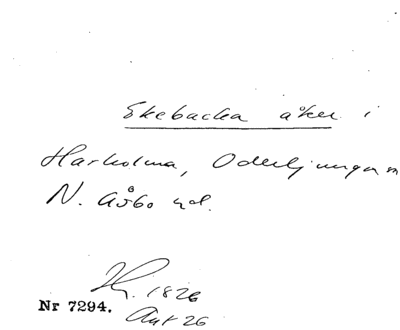 Ekebacka åker i
Harholma, Oderljunga
N. Åsbo hd.
1826
Nr 7294.
Akt 26